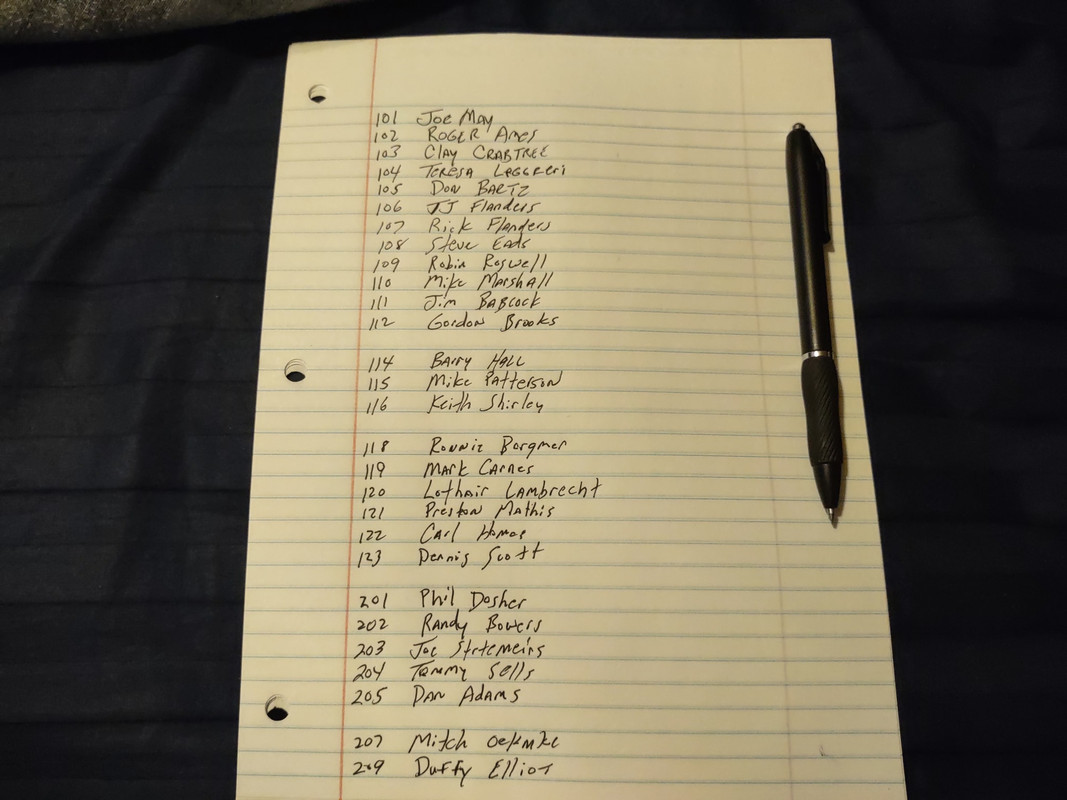 101 Joe May
102 ROGER Ames
103 CLAY CRABTREE
104 TERESA
105 DON BARTZ
106 JJ Flanders
107 Rick Flanders
108 Steve Eads
109 Robin Roswell
110 Mike Marshall
111 Jim BABCOCK
112 Gordon Brooks
114 BARRY HALL
115 Mike PATTERSON
116 Keith Shirley
118 Ronnie Borgmer
119 MARK CARNES
120 Lothair LAMbrecht
121 Preston Mathis
122 Carl
123 Dennis Scott
201 Phil Dosher
202 RANdy Bowers
203 Joe
204 Tommy Sells
205 DAN ADAMS
207 Mitch
209 Duffy Elliot